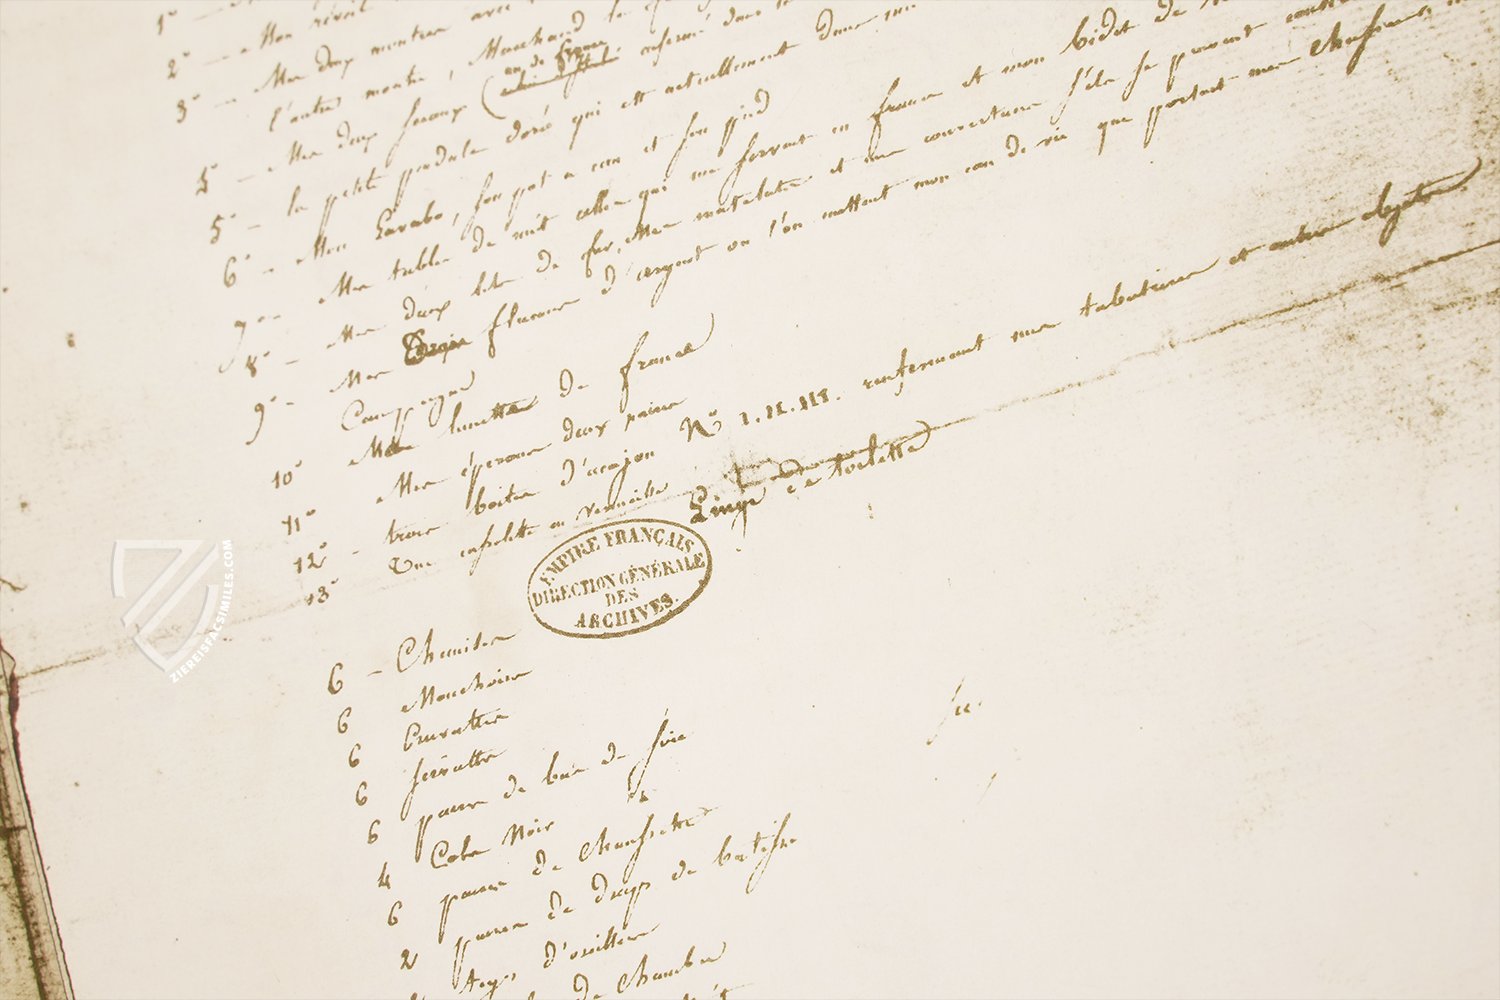 1° —
2° — Mon réveil
3° — Mes deux montres avec
l'autre montre, Marchand
4° — Mes deux Sceaux (un de France enfermé dans
5° — la petite pendule dorée qui est actuellement dans
6° — Mon Lavabo, Son pot a eau et Son pied
7° — Mes tables de nuit celles qui me Servent en france et mon bidet de
8° — Mes deux lits de fer, Mes matelats et une couverture S'ils Se peuvent
9° — Mes Trois flacons d'argent ou l'on mettent mon eau de vie que portent mes Chasseurs
Campagne
10° Mes lunettes de france
11° Mes éperons deux paires
12° — trois boites d'acajou N° I. II. III. renfermant mes tabatières et autres objets.
13° Une cassolette en vermeille
Linge de toilette
EMPIRE FRANÇAIS
DIRECTION GÉNÉRALE
DES
ARCHIVES.
6 — Chemises
6 Mouchoirs
6 Cravattes
6 Serviettes
6 paires de bas de Soie
4 Cols Noir
6 paires de Chaussettes
2 paires de draps de batiste
tayes d'oreillers
de Chambre
ZIEREISFACSIMILES.COM